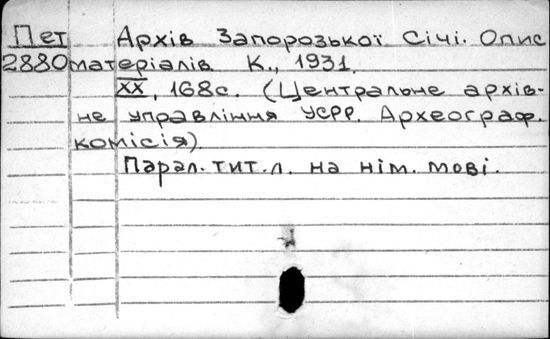 Пет Архів Запорозької Січі. Опис
2880 матеріалів. К., 1931.
XX, 168с. (Центральне архів-
не управління УСРР. Археограф.
комісія).
Парал. тит. л. на нім. мові.